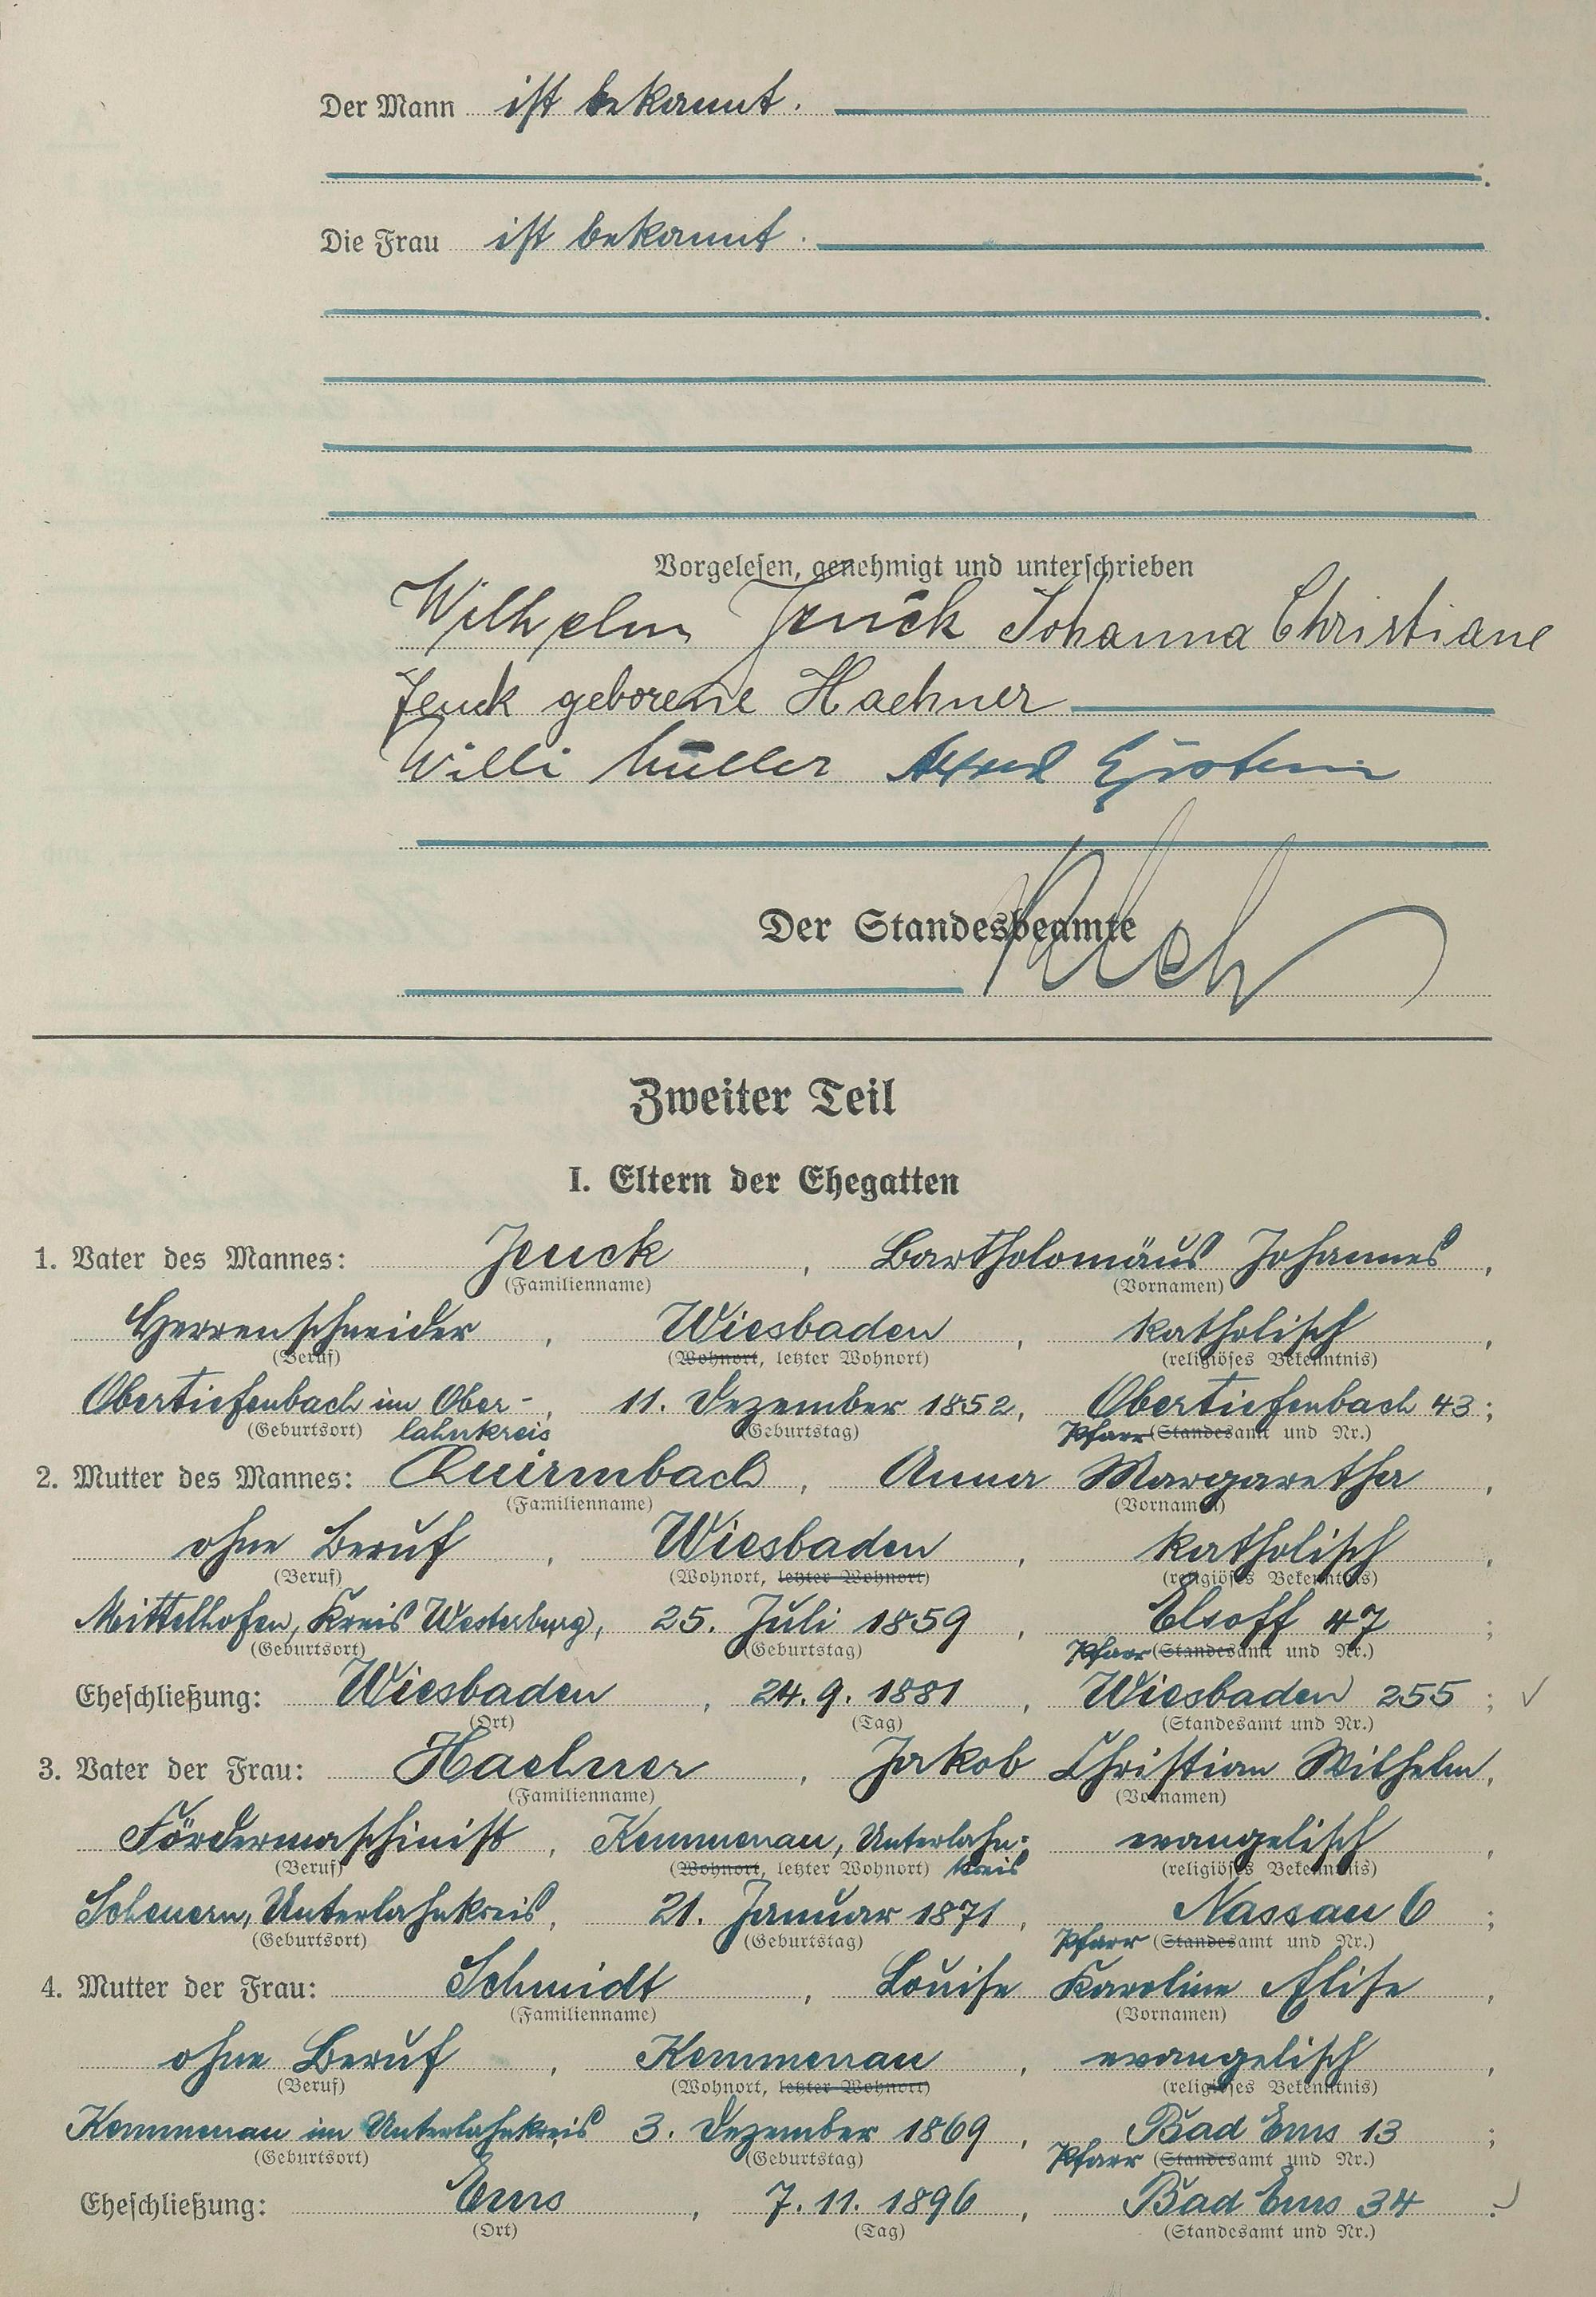 Der Mann ist bekannt.
Die Frau ist bekannt.
Vorgelesen, genehmigt und unterschrieben
Wilhelm Jenck Johanna Christiane
Jenck geborene Haehner
Willi Müller Alfred
Der Standesbeamte
Zweiter Teil
I. Eltern der Ehegatten
1. Vater des Mannes: Jenck, Bartholomäus Johannes,
(Familienname) (Vornamen)
Herrenschneider, Wiesbaden, katholisch,
(Beruf) (Wohnort, letzter Wohnort) (religiöses Bekenntnis)
Obertiefenbach im Ober-, 11. Dezember 1852, Obertiefenbach 43;
(Geburtsort) lahnkreis (Geburtstag) Pfarr (Standesamt und Nr.)
2. Mutter des Mannes: Quirmbach, Anna Margaretha,
(Familienname) (Vornamen)
ohne Beruf, Wiesbaden, katholisch,
(Beruf) (Wohnort, letzter Wohnort) (religiöses Bekenntnis)
Mittelhofen, Kreis Westerburg, 25. Juli 1859, Elsoff 47;
(Geburtsort) (Geburtstag) Pfarr (Standesamt und Nr.)
Eheschließung: Wiesbaden, 24. 9. 1881, Wiesbaden 255;
(Ort) (Tag) (Standesamt und Nr.)
3. Vater der Frau: Haehner, Jakob Christian Wilhelm,
(Familienname) (Vornamen)
Fördermaschinist, Kemmenau, Unterlahn- evangelisch,
(Beruf) (Wohnort, letzter Wohnort) kreis (religiöses Bekenntnis)
Scheuern, Unterlahnkreis, 21. Januar 1871, Nassau 6;
(Geburtsort) (Geburtstag) Pfarr (Standesamt und Nr.)
4. Mutter der Frau: Schmidt, Louise Karoline Elise,
(Familienname) (Vornamen)
ohne Beruf, Kemmenau, evangelisch,
(Beruf) (Wohnort, letzter Wohnort) (religiöses Bekenntnis)
Kemmenau im Unterlahnkreis 3. Dezember 1869, Bad Ems 13;
(Geburtsort) (Geburtstag) Pfarr (Standesamt und Nr.)
Eheschließung: Ems, 7. 11. 1896, Bad Ems 34.
(Ort) (Tag) (Standesamt und Nr.)